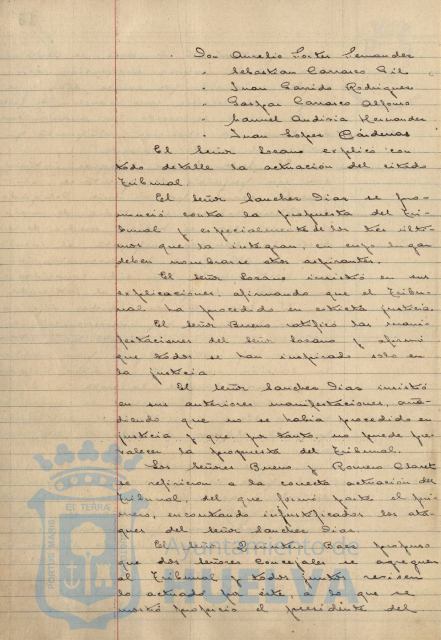 Don Aurelio Fortes Fernandez
" Sebastian Carrasco Gil
" Juan Garrido Rodriguez
" Gaspar Carrasco Alfonso
" Manuel Andivia Hernandez
" Juan Lopez Cárdenas
El Señor Lozano explicó con
todo detalle la actuación del citado
Tribunal.
El Señor Sanchez Dias se pro-
nunció contra la propuesta del Tri-
bunal y especialmente de los tres últi-
mos que la integran, en cuyo lugar
deben nombrarse otros aspirantes.
El Señor Lozano insistió en sus
explicaciones, afirmando que el Tribu-
nal ha procedido en estricta justicia.
El Señor Bueno ratificó las mani-
festaciones del Señor Lozano y afirmó
que todos se han inspirado solo en
la justicia.
El Señor Sanchez Dias insistió
en sus anteriores manifestaciones, aña-
diendo que no se había procedido en
justicia y que, por tanto, no puede pre-
valecer la propuesta del Tribunal.
Los Señores Bueno y Romero Claret
se refirieron a la correcta actuación del
Tribunal, del que formó parte el pri-
mero, encontrando injustificados los ata-
ques del Señor Sanchez Dias.
El Señor Quintero Baez propuso
que dos Señores Concejales se agreguen
al Tribunal y todos juntos revisen
lo actuado por éste, a lo que se
mostró propicio el presidente del
PORTUS MARIS
ET TERRÆ
Ayuntamiento de
HUELVA